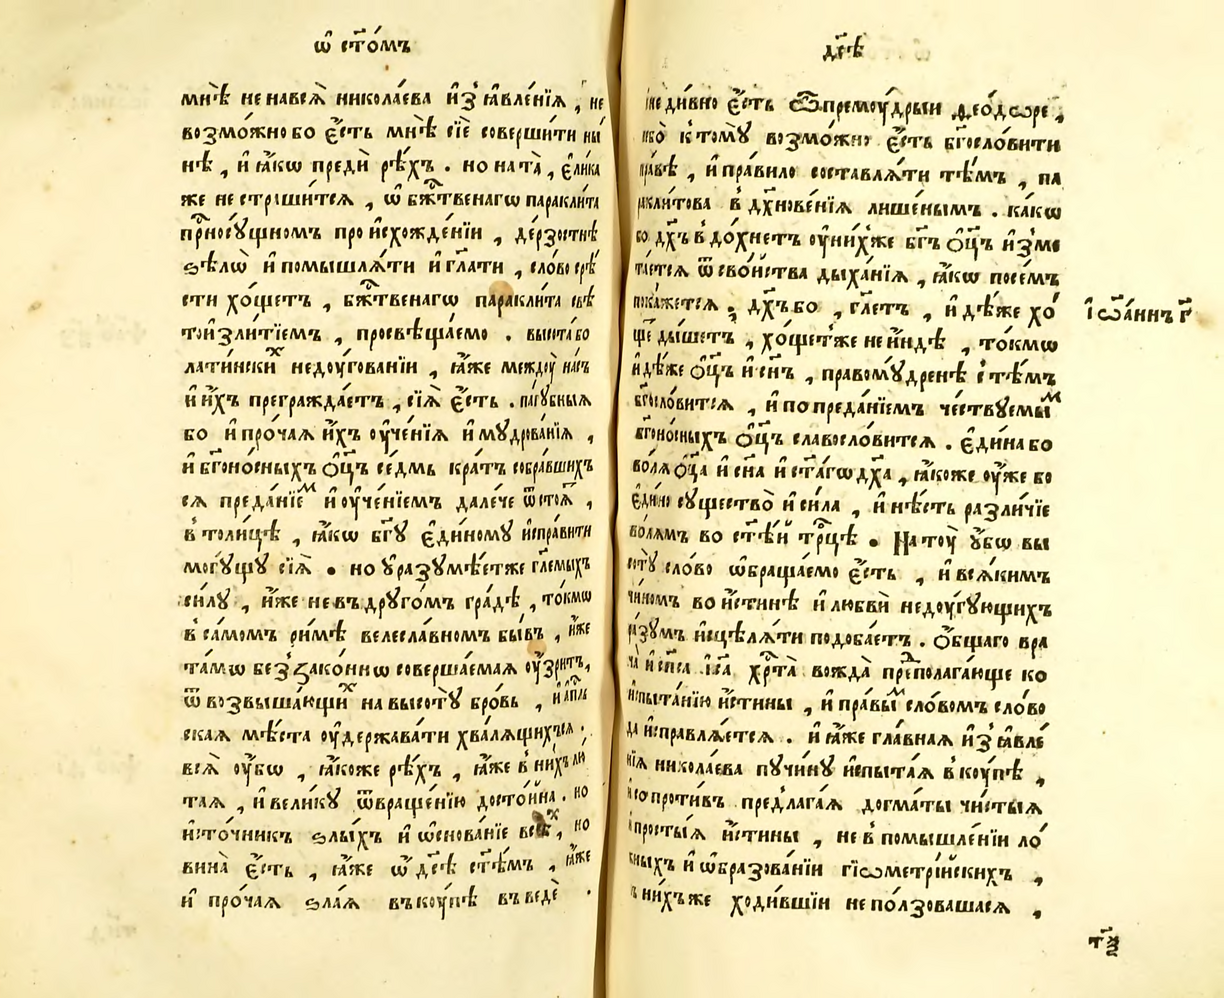 ѡ҆ ст҃о́мъ
мнѣ̀ не навсѧ̀ николаева и҆з̾ѧвле́нїѧ , не
возмо́жно бо є҆́сть мнѣ̀ сїѐ соверши́ти ны́
нѣ , и҆ ꙗ҆́кѡ предѝ рѣ́хъ . но на та̀ , є҆ли́ка
же не стрши́тсѧ , ѡ҆ бж҃твенагѡ паракли́та
прⷭ҇носꙋ́щномъ происхожде́нїи , де́рзостнѣ
ѕѣлѡ̀ и҆ помышлѧ́ти и҆ гл҃ати , сло́во срѣ́
сти хо́щетъ , бж҃твенагѡ паракли́та свѣ
тои҆злитїемъ , просвѣща́емо . высота́ бо
лати́нскиⷯ недоу́гованїи , ꙗ҆́же междꙋ̀ на́съ
и҆ и҆́хъ прегражда́етъ , сїѧ̀ є҆́сть . па́гꙋбныѧ
бо и҆ про́чаѧ и҆́хъ оу҆че́нїѧ и҆ мꙋдрова́нїѧ ,
и҆ бг҃оно́сныхъ ѻ҆ц҃ъ се́дмь кра́тъ собра́вшихъ
сѧ преда́нїеⷨ и҆ оу҆че́нїемъ дале́че ѿстоѧ̀ ,
в то́лицѣ , ꙗ҆́кѡ бг҃ꙋ є҆ди́номꙋ и҆спра́вити
могꙋ́щꙋ сїѧ̀ . но ᲂу҆разꙋмѣ́етже гл҃емыхъ
си́лꙋ , и҆́же не въ дрꙋго́мъ гра́дѣ , то́кмѡ
в са́момъ ри́мѣ велесла́вномъ бы́въ , и҆́же
та́мѡ беззако́ннѡ соверша́емаѧ оу҆́зритъ ,
ѿ возвыша́ющиⷯ на высотꙋ̀ бро́вь , и҆ а҆пⷭ҇ль
скаѧ мѣ́ста оу҆держава́ти хва́лѧщихъсѧ .
всѧ̀ оу҆́бѡ , ꙗ҆́коже рѣ́хъ , ꙗ҆́же в ни́хъ лю́
таѧ , и҆ вели́кꙋ ѿвраще́нїю досто́йна . но
и҆сто́чникъ ѕлы́хъ и҆ ѡ҆снова́нїе всѣⷯ , но
вина̀ є҆́сть , ꙗ҆́же ѡ҆ дс҃ѣ ст҃ѣ́мъ , ꙗ҆́же
и҆ про́чаѧ ѕла́ѧ въкꙋ́пѣ въведѐ .
дс҃ѣ
не ди́вно є҆́сть ѽ премꙋ́дрыи ѳео́дѡре ,
ибо̀ к томꙋ̀ возмо́жно є҆́сть бг҃осло́вити
пра́вѣ , и҆ пра́вило составлѧ́ти тѣ́мъ , па
ракли́това в дх҃нове́нїѧ лише́нымъ . ка́кѡ
бо дх҃ъ в до́хнетъ оу҆ ни́хже бг҃ъ ѻ҆ц҃ъ и҆змѣ
та́етсѧ ѿ сво́йства дыха́нїѧ , ꙗ҆́кѡ посе́мъ
пока́жетсѧ . дх҃ъ бо , гл҃етъ , и҆дѣ́же хо́
ще ды́шетъ , хо́щетже не и҆́ндѣ , то́кмѡ
и҆дѣ́же ѻ҆ц҃ъ и҆ сн҃ъ , правомꙋ́дренѣ с тѣ́мъ
бг҃осло́витсѧ , и҆ по преда́нїемъ че́ствꙋемыⷨ
бг҃оно́сныхъ ѻ҆ц҃ъ славосло́витсѧ . є҆ди́на бо
во́лѧ ѻ҆ц҃а и҆ сн҃а и҆ ст҃а́гѡ дх҃а , ꙗ҆́коже оу҆́же бо
є҆ди́но сꙋщество̀ и҆ си́ла , и҆ нѣ́сть разли́чїе
во́лѧмъ во ст҃ѣ́й трⷪ҇цѣ . На тоу̀ ᲂу҆́бѡ вы
сотꙋ̀ сло́во ѡ҆браща́емо є҆́сть , и҆ всѧ́кимъ
чи́номъ во и҆́стинѣ и҆ любвѝ недоу́гꙋющихъ
ра́зꙋмъ и҆сцѣлѧ́ти подоба́етъ . ѻ҆́бщаго вра
ча̀ и҆ сп҃са і҆с҃а хрⷭ҇та̀ вожда̀ преⷣполага́юще ко
и҆спыта́нїю и҆́стины , и҆ пра́выⷨ сло́вомъ сло́во
да и҆справлѧ́етсѧ . и҆ ꙗ҆́же гла́внаѧ и҆з̾ѧвле́
нїѧ никола́ева пꙋчи́нꙋ и҆спыта́ѧ вкꙋ́пѣ ,
и҆ сопроти́въ предлага́ѧ до́гматы чи́стыѧ
и҆ просты́ѧ и҆́стины , не в помышле́нїи ло́
жныхъ и҆ ѡ҆бразова́нїи гїѡметрі́йскихъ ,
в ни́хъже ходи́вшїи не по́лзовашасѧ ,
і҆ѡа́ннъ г҃
тѯ҃